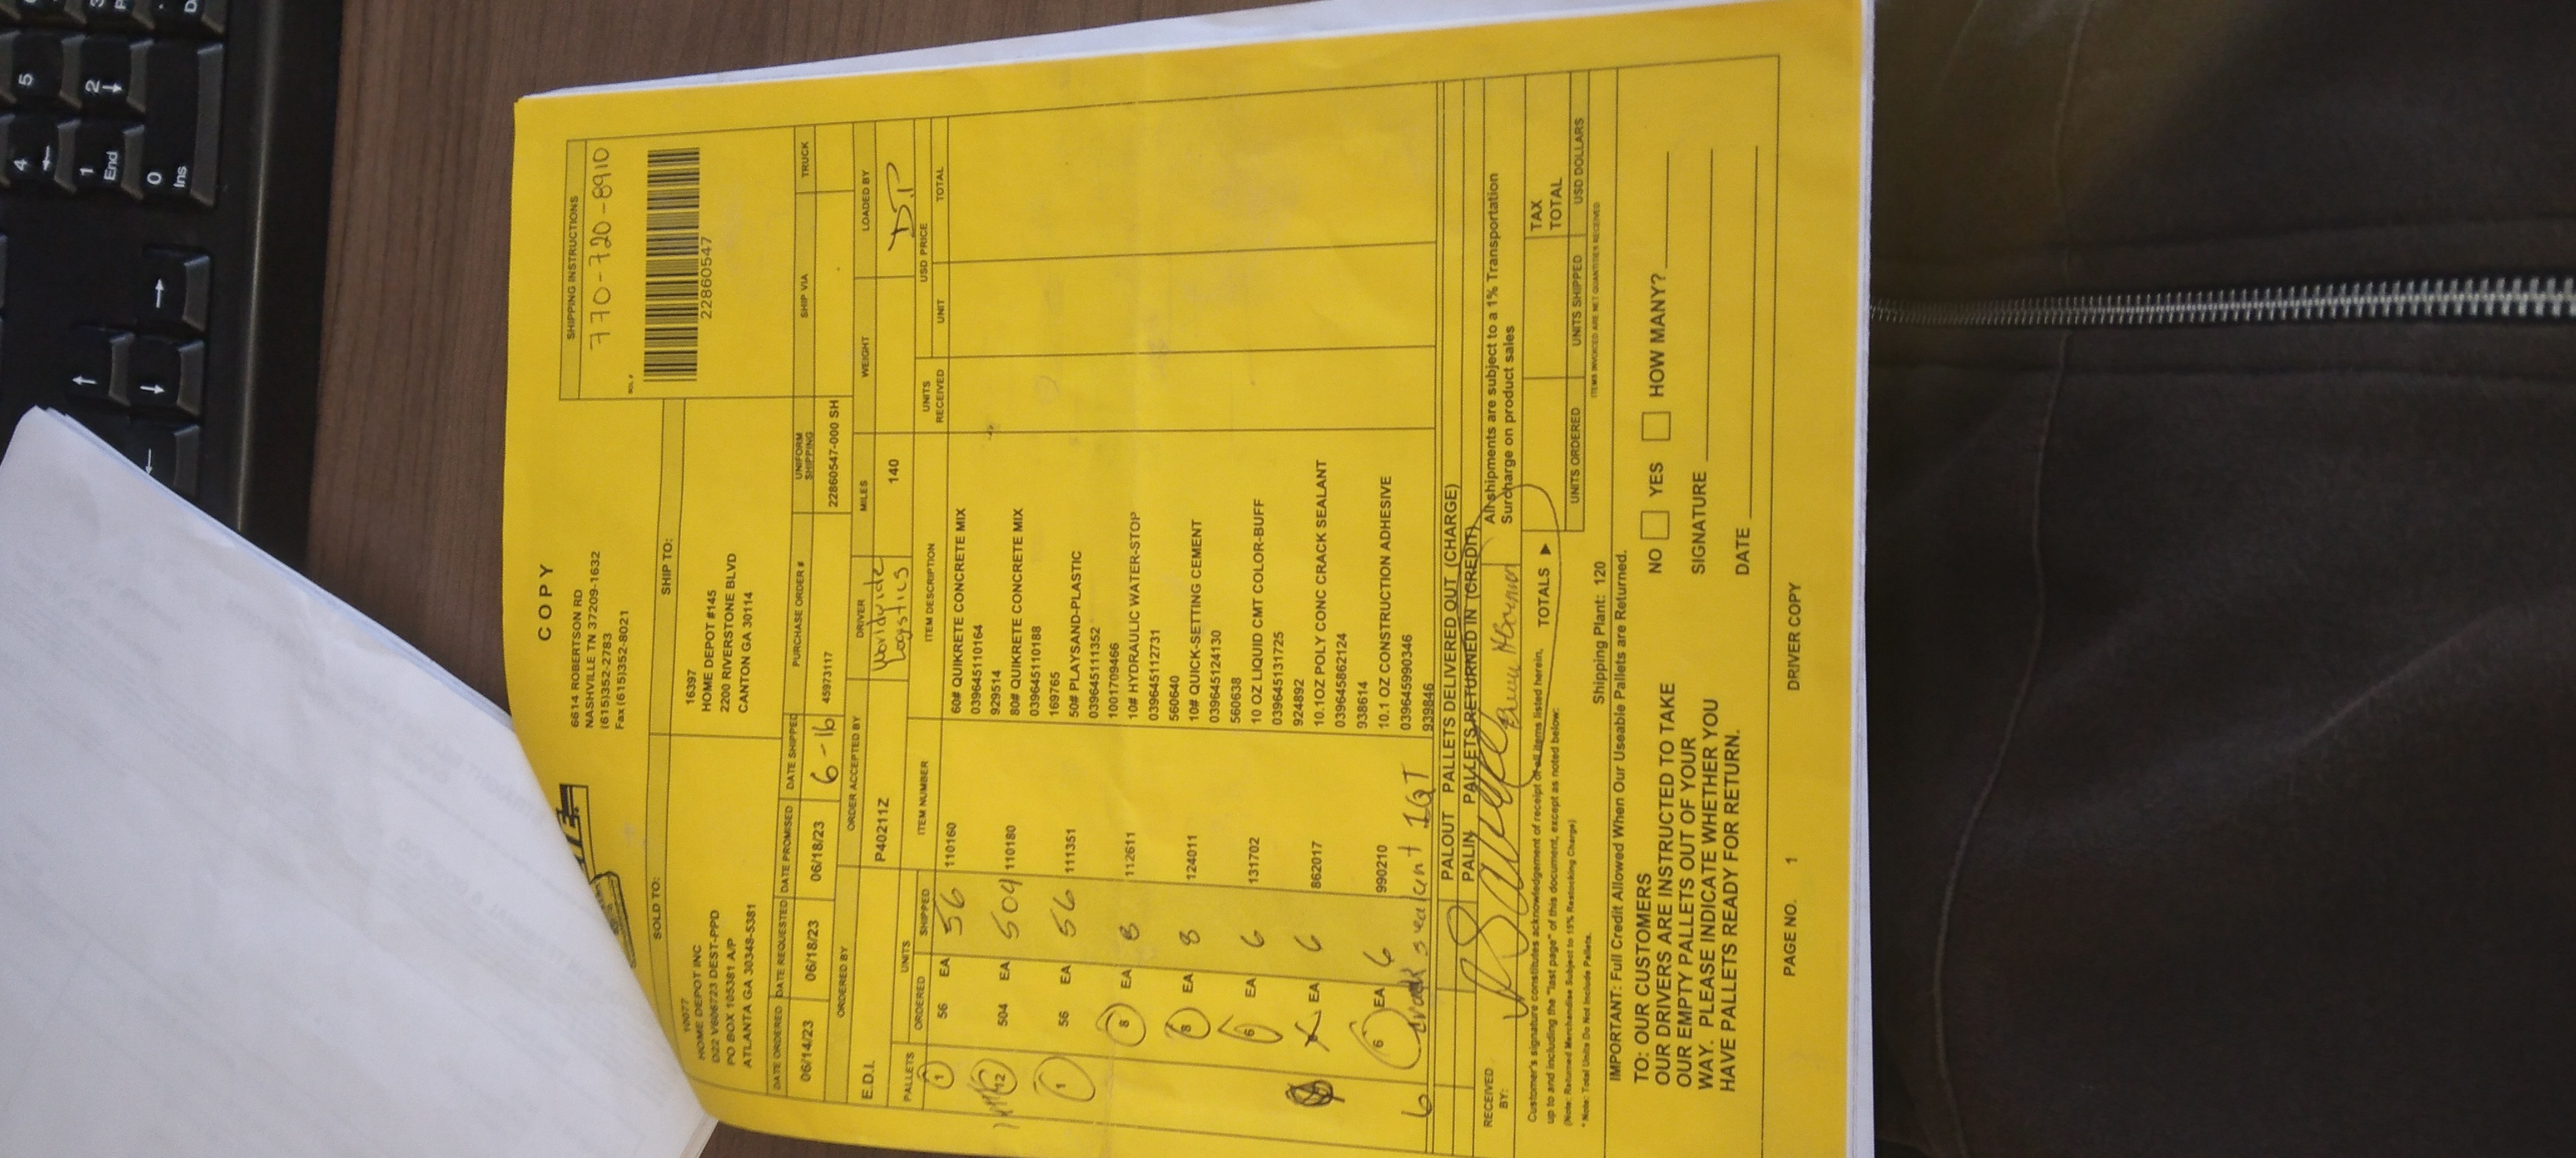 4 5
1 End 2
0 Ins
COPY
6614 ROBERTSON RD
NASHVILLE TN 37209-1632
(615)352-2783
Fax (615)352-8021
SHIPPING INSTRUCTIONS
770-720-8910
BOL #
22860547
SOLD TO:
10077
HOME DEPOT INC
D22 V606723 DEST-PPD
PO BOX 105381 A/P
ATLANTA GA 30348-5381
SHIP TO:
16397
HOME DEPOT #145
2200 RIVERSTONE BLVD
CANTON GA 30114
DATE ORDERED DATE REQUESTED DATE PROMISED DATE SHIPPED PURCHASE ORDER # UNIFORM SHIPPING SHIP VIA TRUCK
06/14/23 06/18/23 06/18/23 6-16 45973117 22860547-000 SH
ORDERED BY ORDER ACCEPTED BY DRIVER MILES WEIGHT LOADED BY
E.D.I. P40211Z Worldwide Logistics 140 D.P
PALLETS UNITS ORDERED SHIPPED ITEM NUMBER ITEM DESCRIPTION UNITS RECEIVED USD PRICE UNIT TOTAL
1 56 EA 56 110160 60# QUIKRETE CONCRETE MIX
039645110164
929514
12 504 EA 504 110180 80# QUIKRETE CONCRETE MIX
039645110188
169765
1 56 EA 56 111351 50# PLAYSAND-PLASTIC
039645111352
1001709466
8 EA 8 112611 10# HYDRAULIC WATER-STOP
039645112731
560640
8 EA 8 124011 10# QUICK-SETTING CEMENT
039645124130
560638
6 EA 6 131702 10 OZ LIQUID CMT COLOR-BUFF
039645131725
924892
EA 6 862017 10.1OZ POLY CONC CRACK SEALANT
039645862124
938614
6 EA 6 990210 10.1 OZ CONSTRUCTION ADHESIVE
039645990346
939846
6 crack sealant 1QT
PALOUT PALLETS DELIVERED OUT (CHARGE)
PALIN PALLETS RETURNED IN (CREDIT)
RECEIVED BY:
All shipments are subject to a 1% Transportation
Surcharge on product sales
Customer's signature constitutes acknowledgement of receipt of all items listed herein,
up to and including the "last page" of this document, except as noted below:
(Note: Returned Merchandise Subject to 15% Restocking Charge)
* Note: Total Units Do Not Include Pallets.
TOTALS ▶
TAX
TOTAL
UNITS ORDERED UNITS SHIPPED USD DOLLARS
Shipping Plant: 120
ITEMS INVOICED ARE NET QUANTITIES RECEIVED
IMPORTANT: Full Credit Allowed When Our Useable Pallets are Returned.
TO: OUR CUSTOMERS
OUR DRIVERS ARE INSTRUCTED TO TAKE
OUR EMPTY PALLETS OUT OF YOUR
WAY. PLEASE INDICATE WHETHER YOU
HAVE PALLETS READY FOR RETURN.
NO YES HOW MANY?
SIGNATURE
DATE
PAGE NO. 1 DRIVER COPY